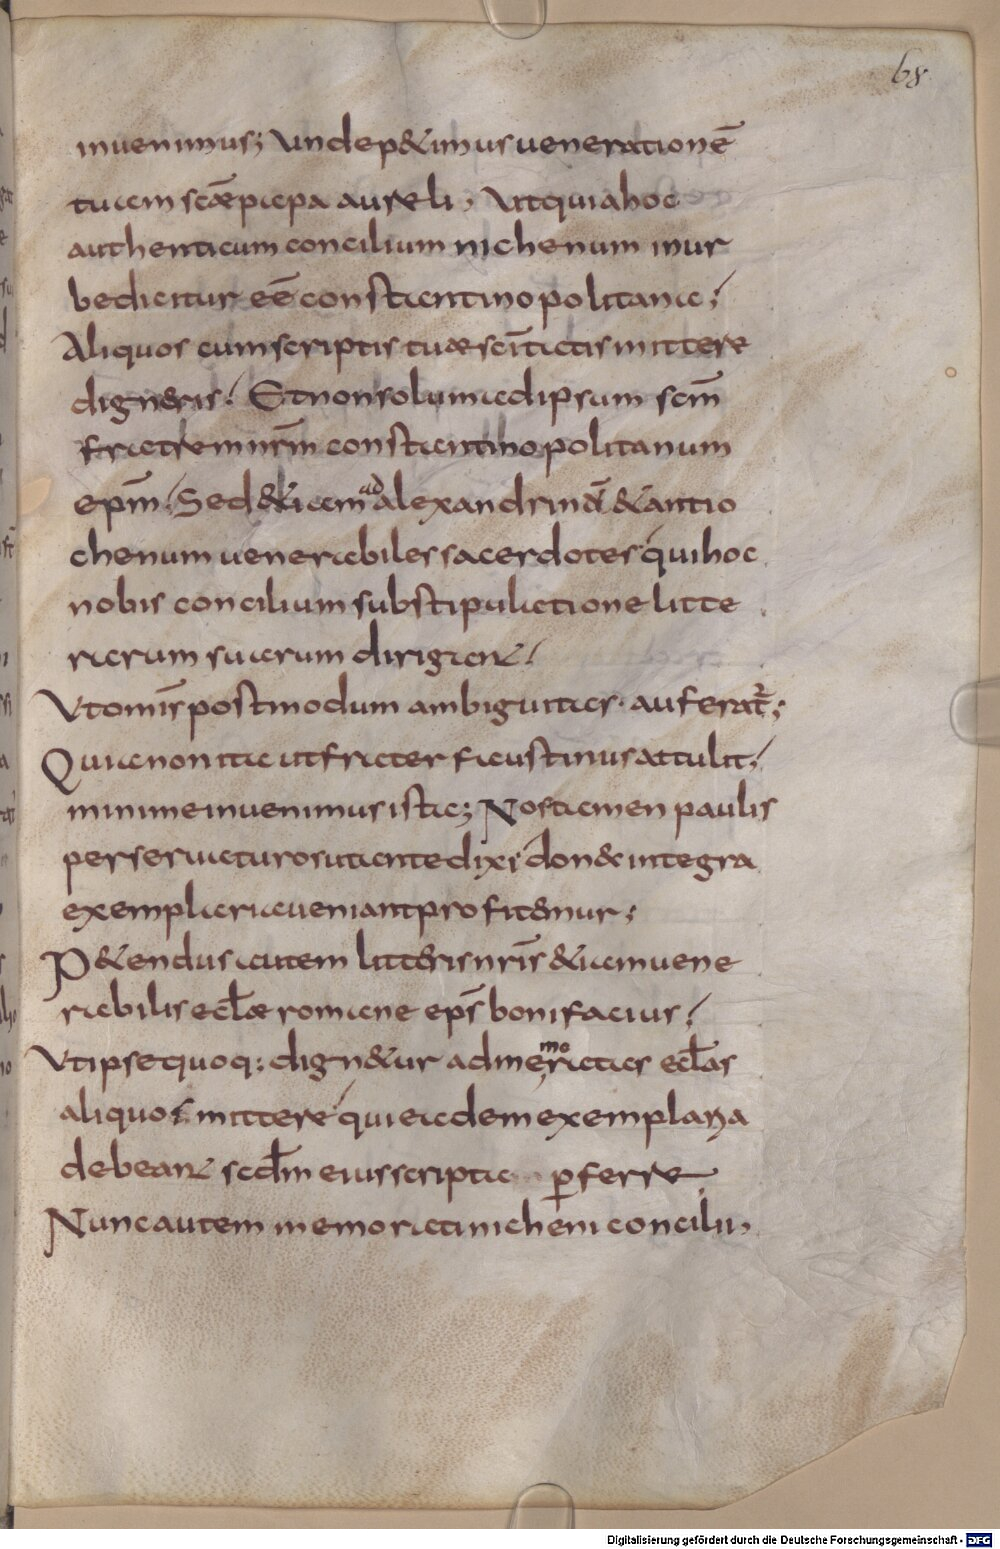 68
inuenimus; Unde p&imus uenerationē
tuam scæ papa aureli, Ut quia hoc
authenticum concilium nichenum in ur
be dicitur eē constantinopolitana;
Aliquos cum scriptis tuæ scītatis mittere
digneris; Et non solum ad ipsum scm̄
fratrem nr̄m constantinopolitanum
epm̄; Sed &iam ad alexandrinū & antio
chenum uenerabiles sacerdotes qui hoc
nobis concilium sub stipulatione litte
rarum suarum dirigant;
Ut omīs post modum ambiguitas auferat̄;
Quia non ita ut frater faustinus attulit;
minime inuenimus ista; Nos tamen paulis
per seruaturos ut ante dixi don& integra
exemplaria ueniant profitemur;
P&endus autem litteris nr̄īs &iam uene
rabilis eclæ romane eps̄ bonifacius;
Ut ipse quoq: dign&ur ad memoratas ecl̄as
aliquos mittere qui eadem exemplaria
debeant scdm̄ eius scripta perferre
Nunc autem memorati nicheni concilii,
Digitalisierung gefördert durch die Deutsche Forschungsgemeinschaft - DFG